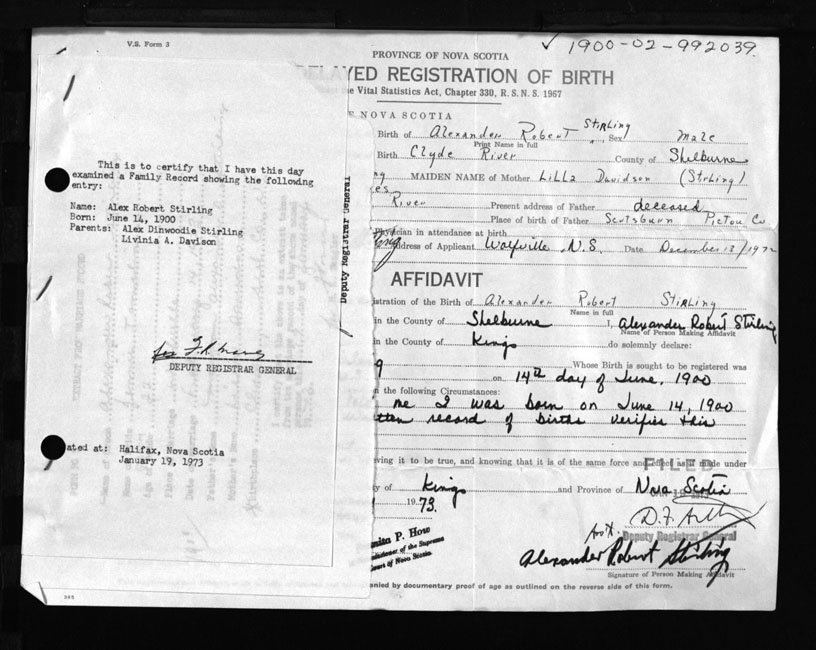 V.S. Form 3
✓ 1900-02-992039.
PROVINCE OF NOVA SCOTIA
YED REGISTRATION OF BIRTH
he Vital Statistics Act, Chapter 330, R. S. N. S. 1967
E NOVA SCOTIA
Birth of Alexander Robert Stirling Sex Male
Print Name in full
Birth Clyde River County of Shelburne
MAIDEN NAME of Mother Lilla Davidson (Stirling)
River Present address of Father deceased
Place of birth of Father Scotsburn Pictou Co
Physician in attendance at birth
Address of Applicant Wolfville N.S. Date December 13/1972
This is to certify that I have this day
examined a Family Record showing the following
entry:
Name: Alex Robert Stirling
Born: June 14, 1900
Parents: Alex Dinwoodie Stirling
Livinia A. Davison
DEPUTY REGISTRAR GENERAL
ated at: Halifax, Nova Scotia
January 19, 1973
Deputy Registrar General
AFFIDAVIT
istration of the Birth of Alexander Robert Stirling
Name in full
in the County of Shelburne I, Alexander Robert Stirling
Name of Person Making Affidavit
in the County of Kings do solemnly declare:
Whose Birth is sought to be registered was
9 on 14th day of June, 1900
n the following Circumstances:
me I was born on June 14, 1900
tten record of births verifies this
ving it to be true, and knowing that it is of the same force and effect as if made under
FILED
ty of Kings and Province of Nova Scotia
1973.
nita P. How
issioner of the Supreme
Court of Nova Scotia.
Deputy Registrar General
Alexander Robert Stirling
Signature of Person Making Affidavit
anied by documentary proof of age as outlined on the reverse side of this form.